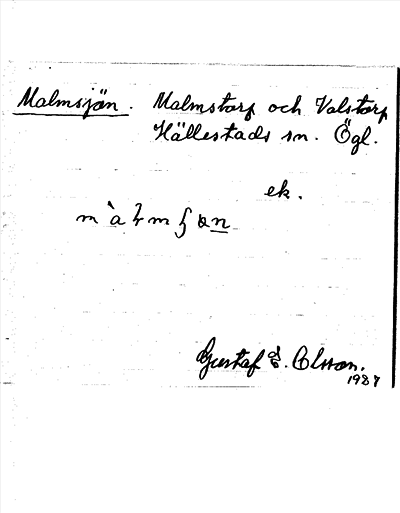 Malmsjön. Malmstorp och Valstorp
Hällestads sn. Ögl.
ek.
Gustaf E. Olsson.
1987